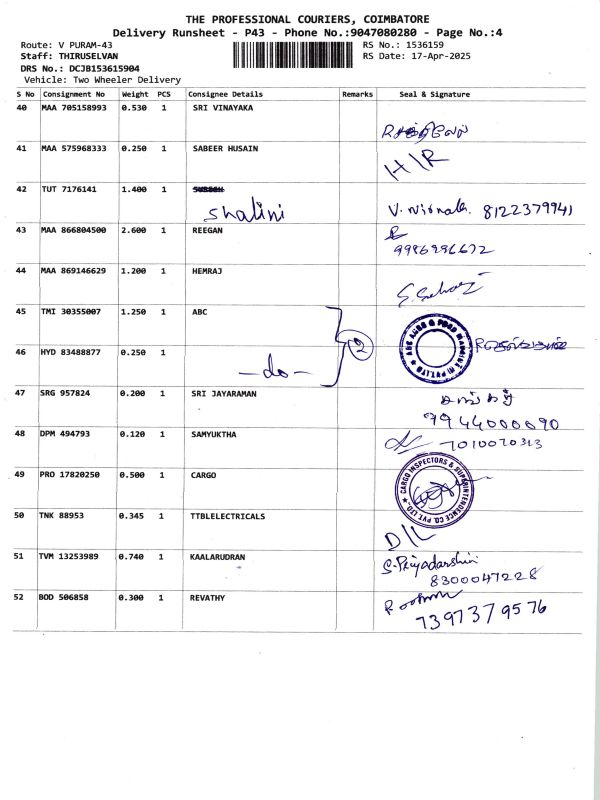 THE PROFESSIONAL COURIERS, COIMBATORE
Delivery Runsheet - P43 - Phone No.:9047080280 - Page No.:4
Route: V PURAM-43 RS No.: 1536159
Staff: THIRUSELVAN RS Date: 17-Apr-2025
DRS No.: DCJB153615904
Vehicle: Two Wheeler Delivery
S No Consignment No Weight PCS Consignee Details Remarks Seal & Signature
40 MAA 705158993 0.530 1 SRI VINAYAKA
41 MAA 575968333 0.250 1 SABEER HUSAIN H/R
42 TUT 7176141 1.400 1
Shalini V. Nirmala. 8122379941
43 MAA 866804500 2.600 1 REEGAN
9996996672
44 MAA 869146629 1.200 1 HEMRAJ
45 TMI 30355007 1.250 1 ABC
2
46 HYD 83488877 0.250 1
-do-
47 SRG 957824 0.200 1 SRI JAYARAMAN
9944000090
48 DPM 494793 0.120 1 SAMYUKTHA 7010070313
49 PRO 17820250 0.500 1 CARGO CARGO INSPECTORS & SUPERINTENDENCE CO. PVT. LTD.
50 TNK 88953 0.345 1 TTBLELECTRICALS D/L
51 TVM 13253989 0.740 1 KAALARUDRAN S. Priyadarshini
8300047228
52 BOD 506858 0.300 1 REVATHY
7397379576